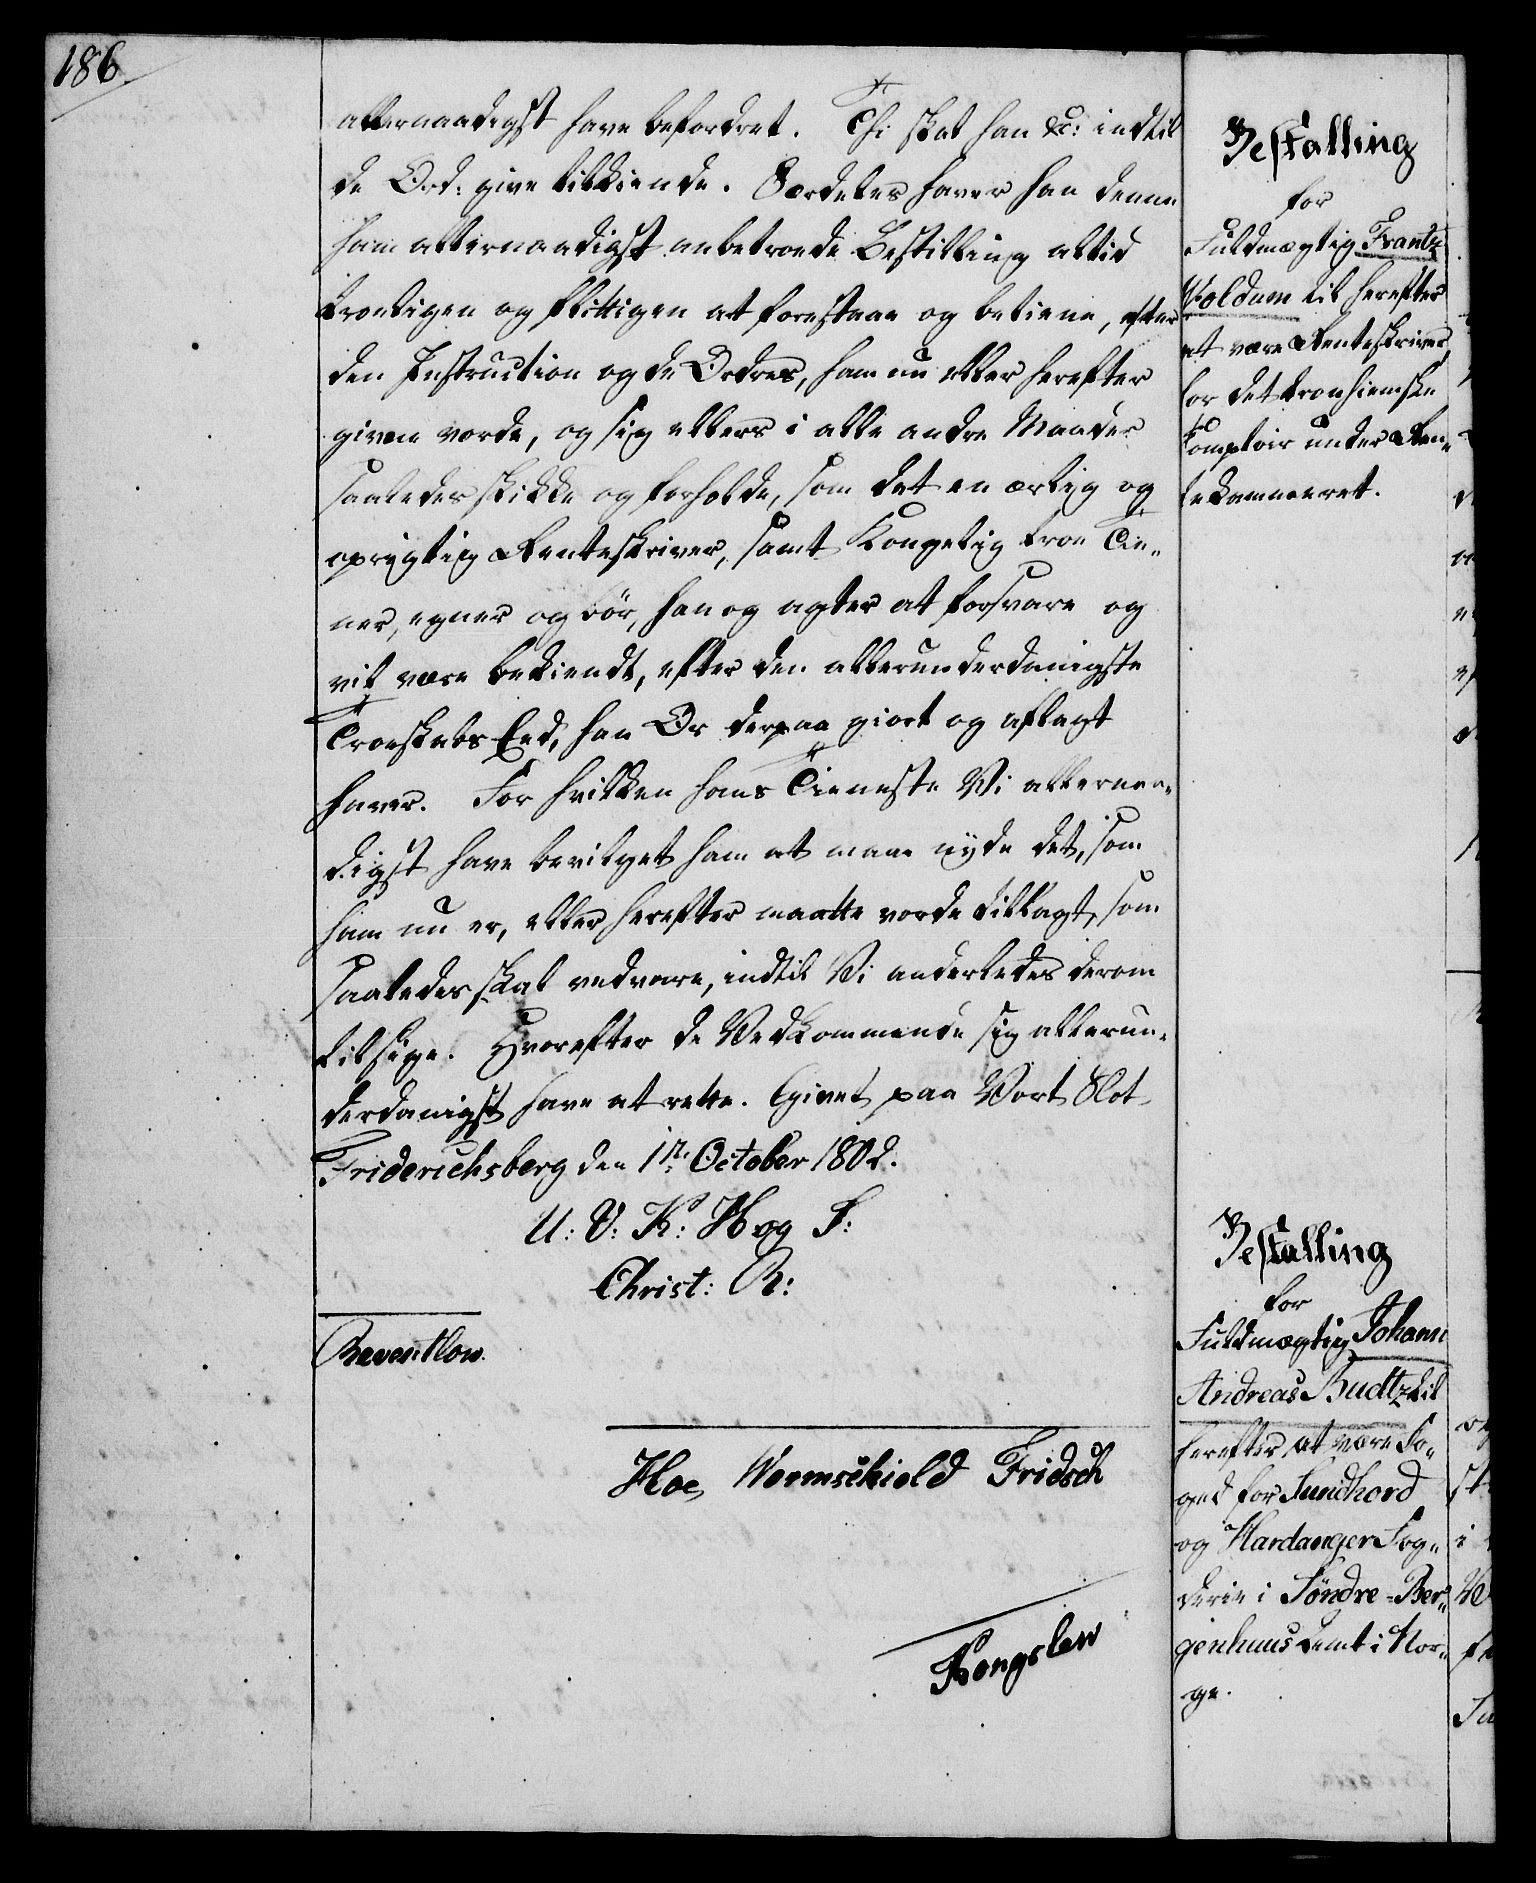 186.
allernaadigst have befordret. Thi skal han &c: indtil
de Ord: give tilkiende. Særdeles haver han denne
ham allernaadigst anbetroede Bestilling altid
troeligen og flittigen at forestaae og betiene, efter
den Instruction og de Ordres, ham nu eller herefter
given vorde, og sig ellers i alle andre Maader
saaledes skikke og forholde, som det en ærlig og
oprigtig Renteskriver, samt Kongelig troe Tie„
ner, egner og bör, han og agter at forsvare og
vil være bekiendt, efter den allerunderdanigste
Troeskabs Eed, han Os derpaa giort og aflagt
haver. For hvilken hans Tieneste Vi allernaa„
digst have bevilget ham at maae nyde det, som
ham nu er, eller herefter maatte vorde tillagt, som
saaledes skal vedvare, indtil Vi anderledes derom
tilsige. Hvorefter de Vedkommende sig allerun„
derdanigst have at rette. Givet paa Vort Slot
Friderichsberg den 1st. October 1802.
U: V: K: H og S:
Christ: R:
Reventlow.
Hoe Wormskiold Fridsch
Kongslew
Bestalling
for
Fuldmægtig Frantz
Woldum til herefter
at være Renteskriver
for det tronhiemske
Komptoir under Ren„
tekammeret.
Bestalling
for
Fuldmægtig Johann
Andreas Budtz til
herefter at være Fo„
ged for Sundhord
og Hardanger Fog„
derie i Söndre-Ber„
genhuus Amt i Nor„
ge.